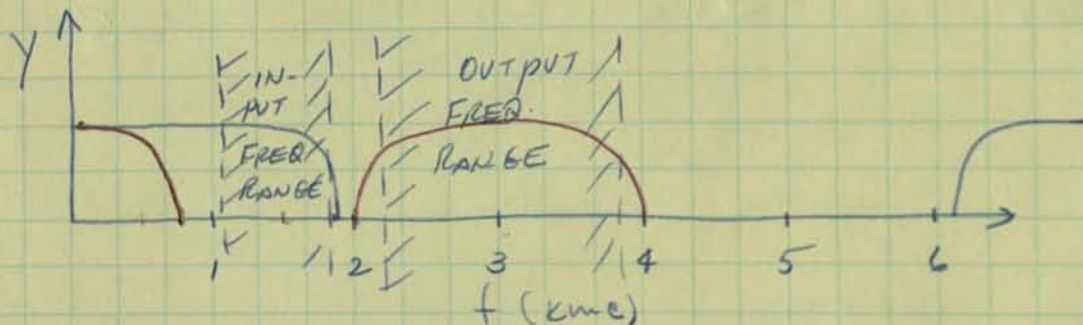 Y
IN-
PUT
FREQ
RANGE
OUTPUT
FREQ.
RANGE
1 2 3 4 5 6
f (kmc)